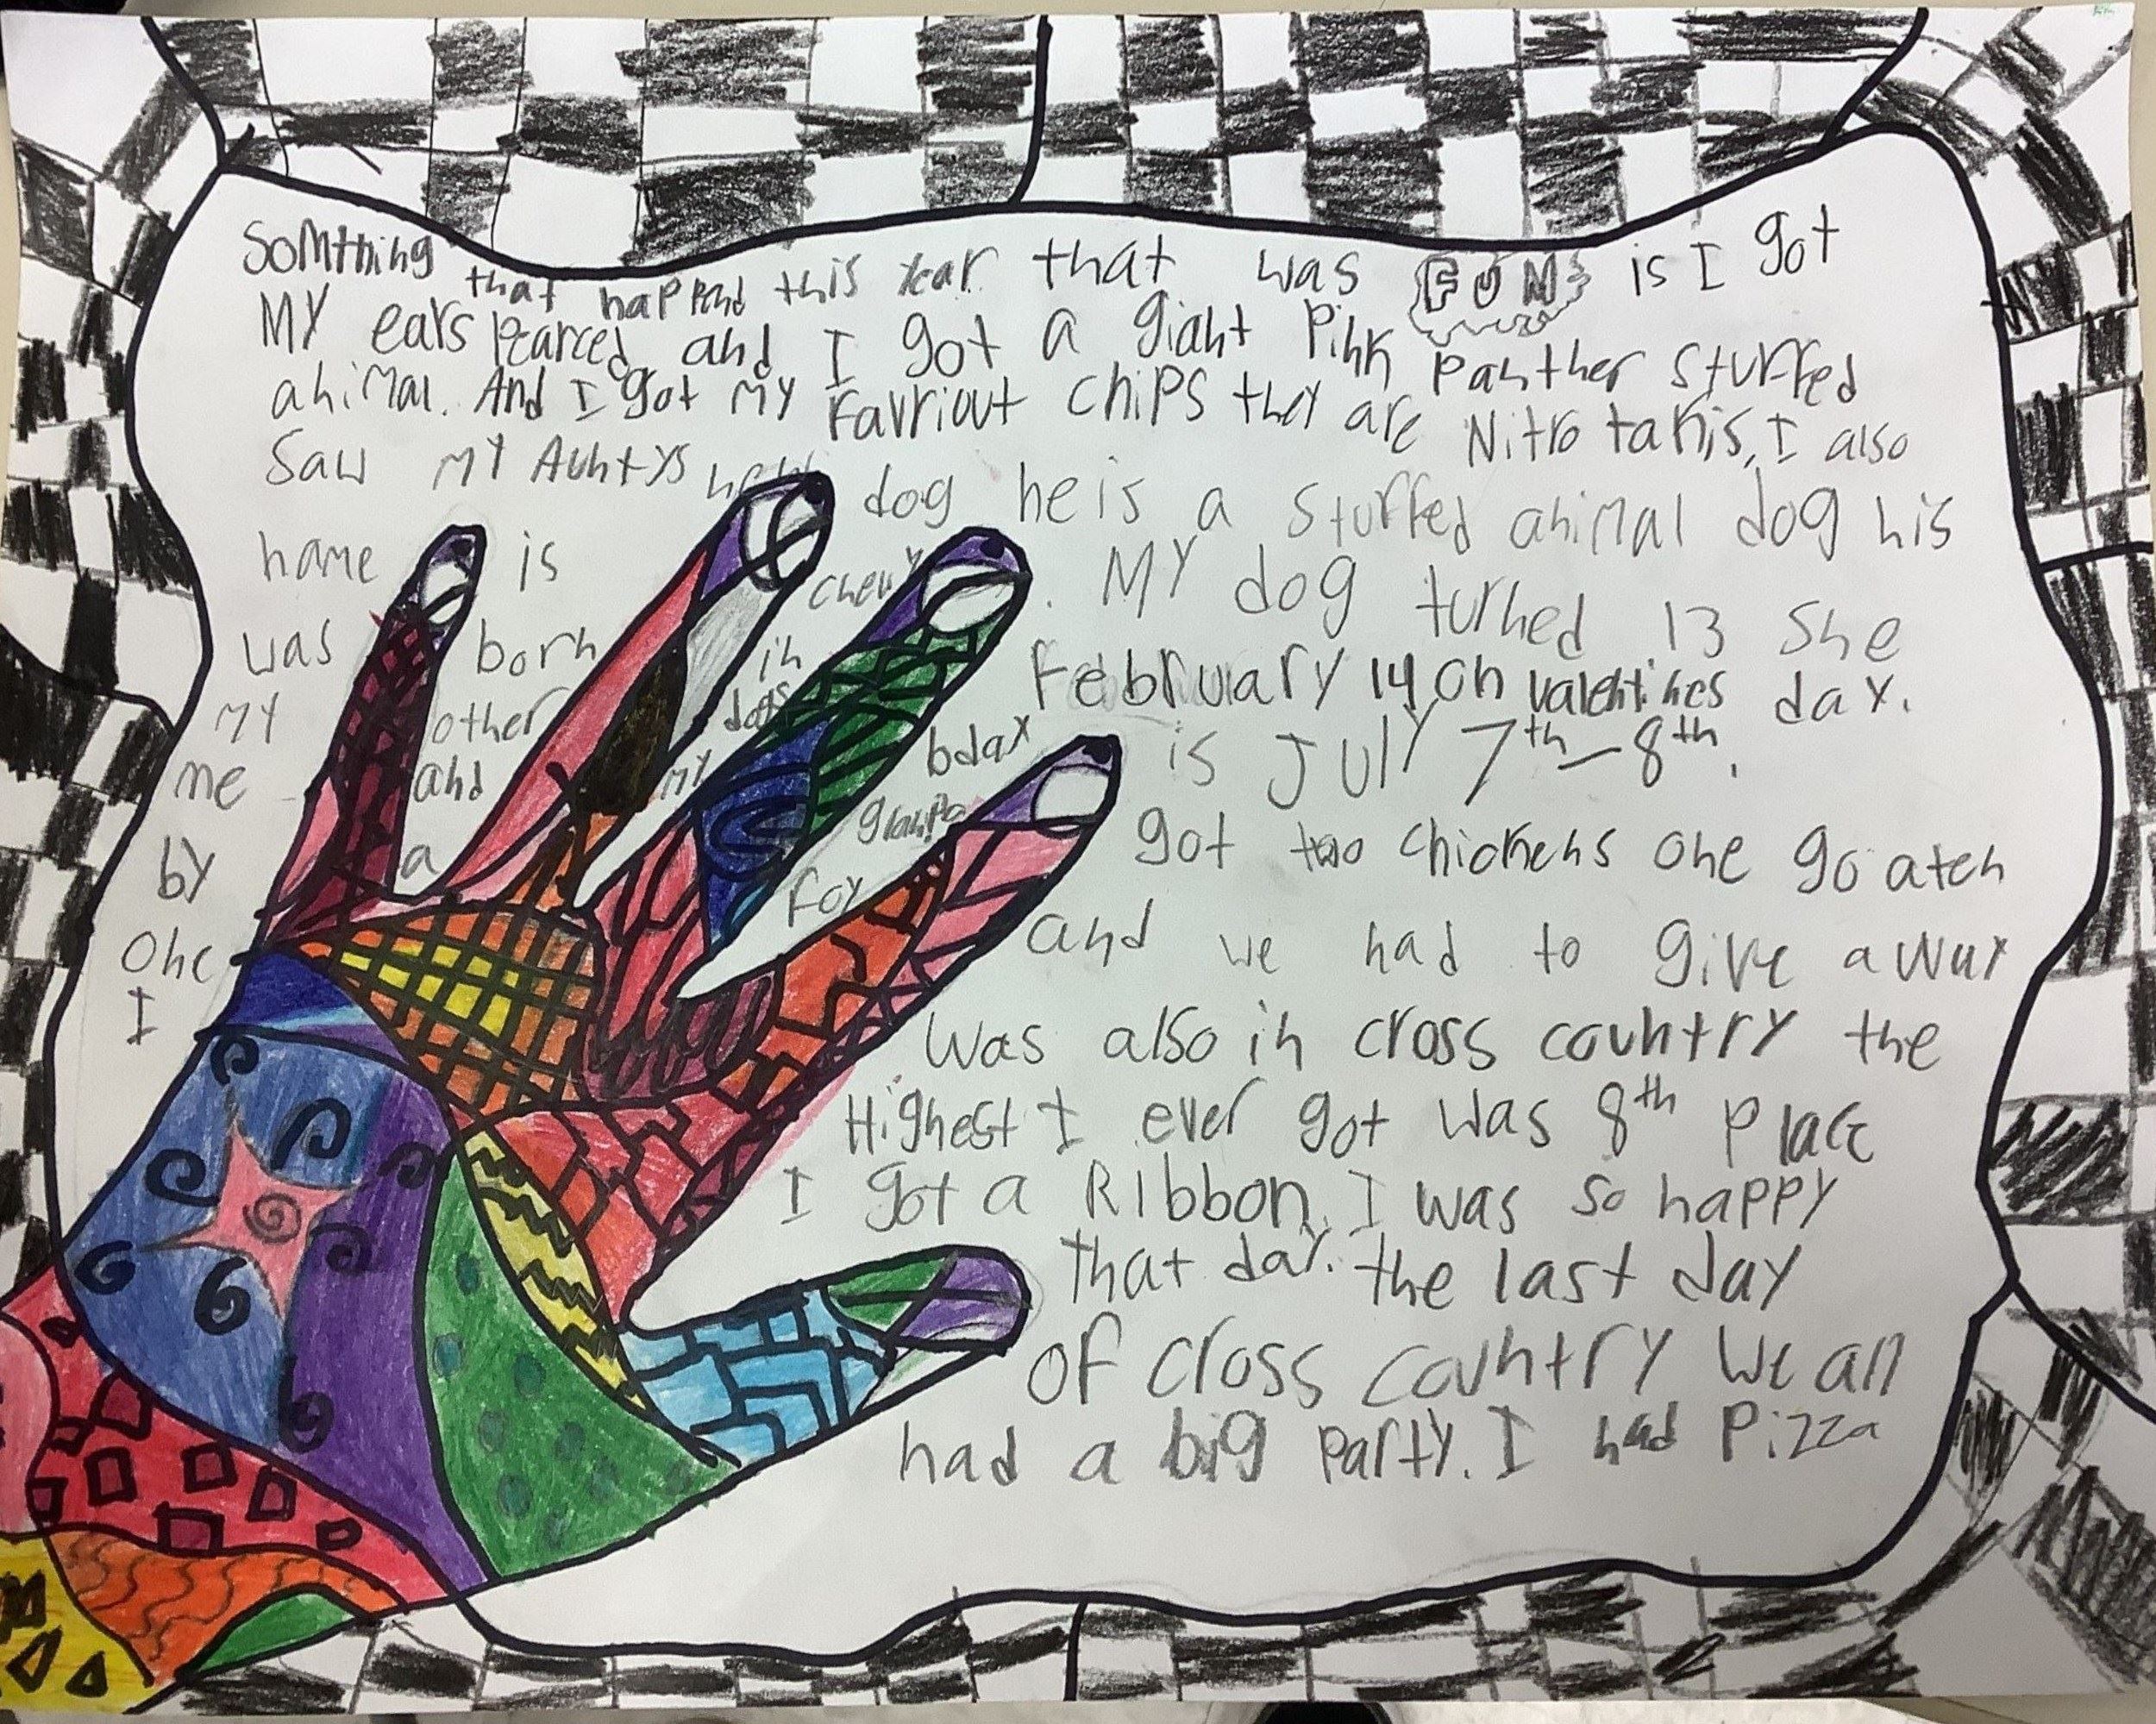 Somthing that happend this year that was FUN is I got
MY ears pearced and I got a giant Pink panther stuffed
animal. And I got MY Favriout chips they are Nitro takis, I also
Saw MY Auntys new dog he is a stuffed animal dog his
name is chewy. MY dog turned 13 she
was born in February 14 on valentines day.
MY other dogs bday is JULY 7th-8th.
me and MY granpa got two chickens one go aten
by a Fox and we had to give away
one
I was also in cross country the
Highest I ever got was 8th place
I got a Ribbon. I was so happy
that day. the last day
of cross country we all
had a big party. I had Pizza